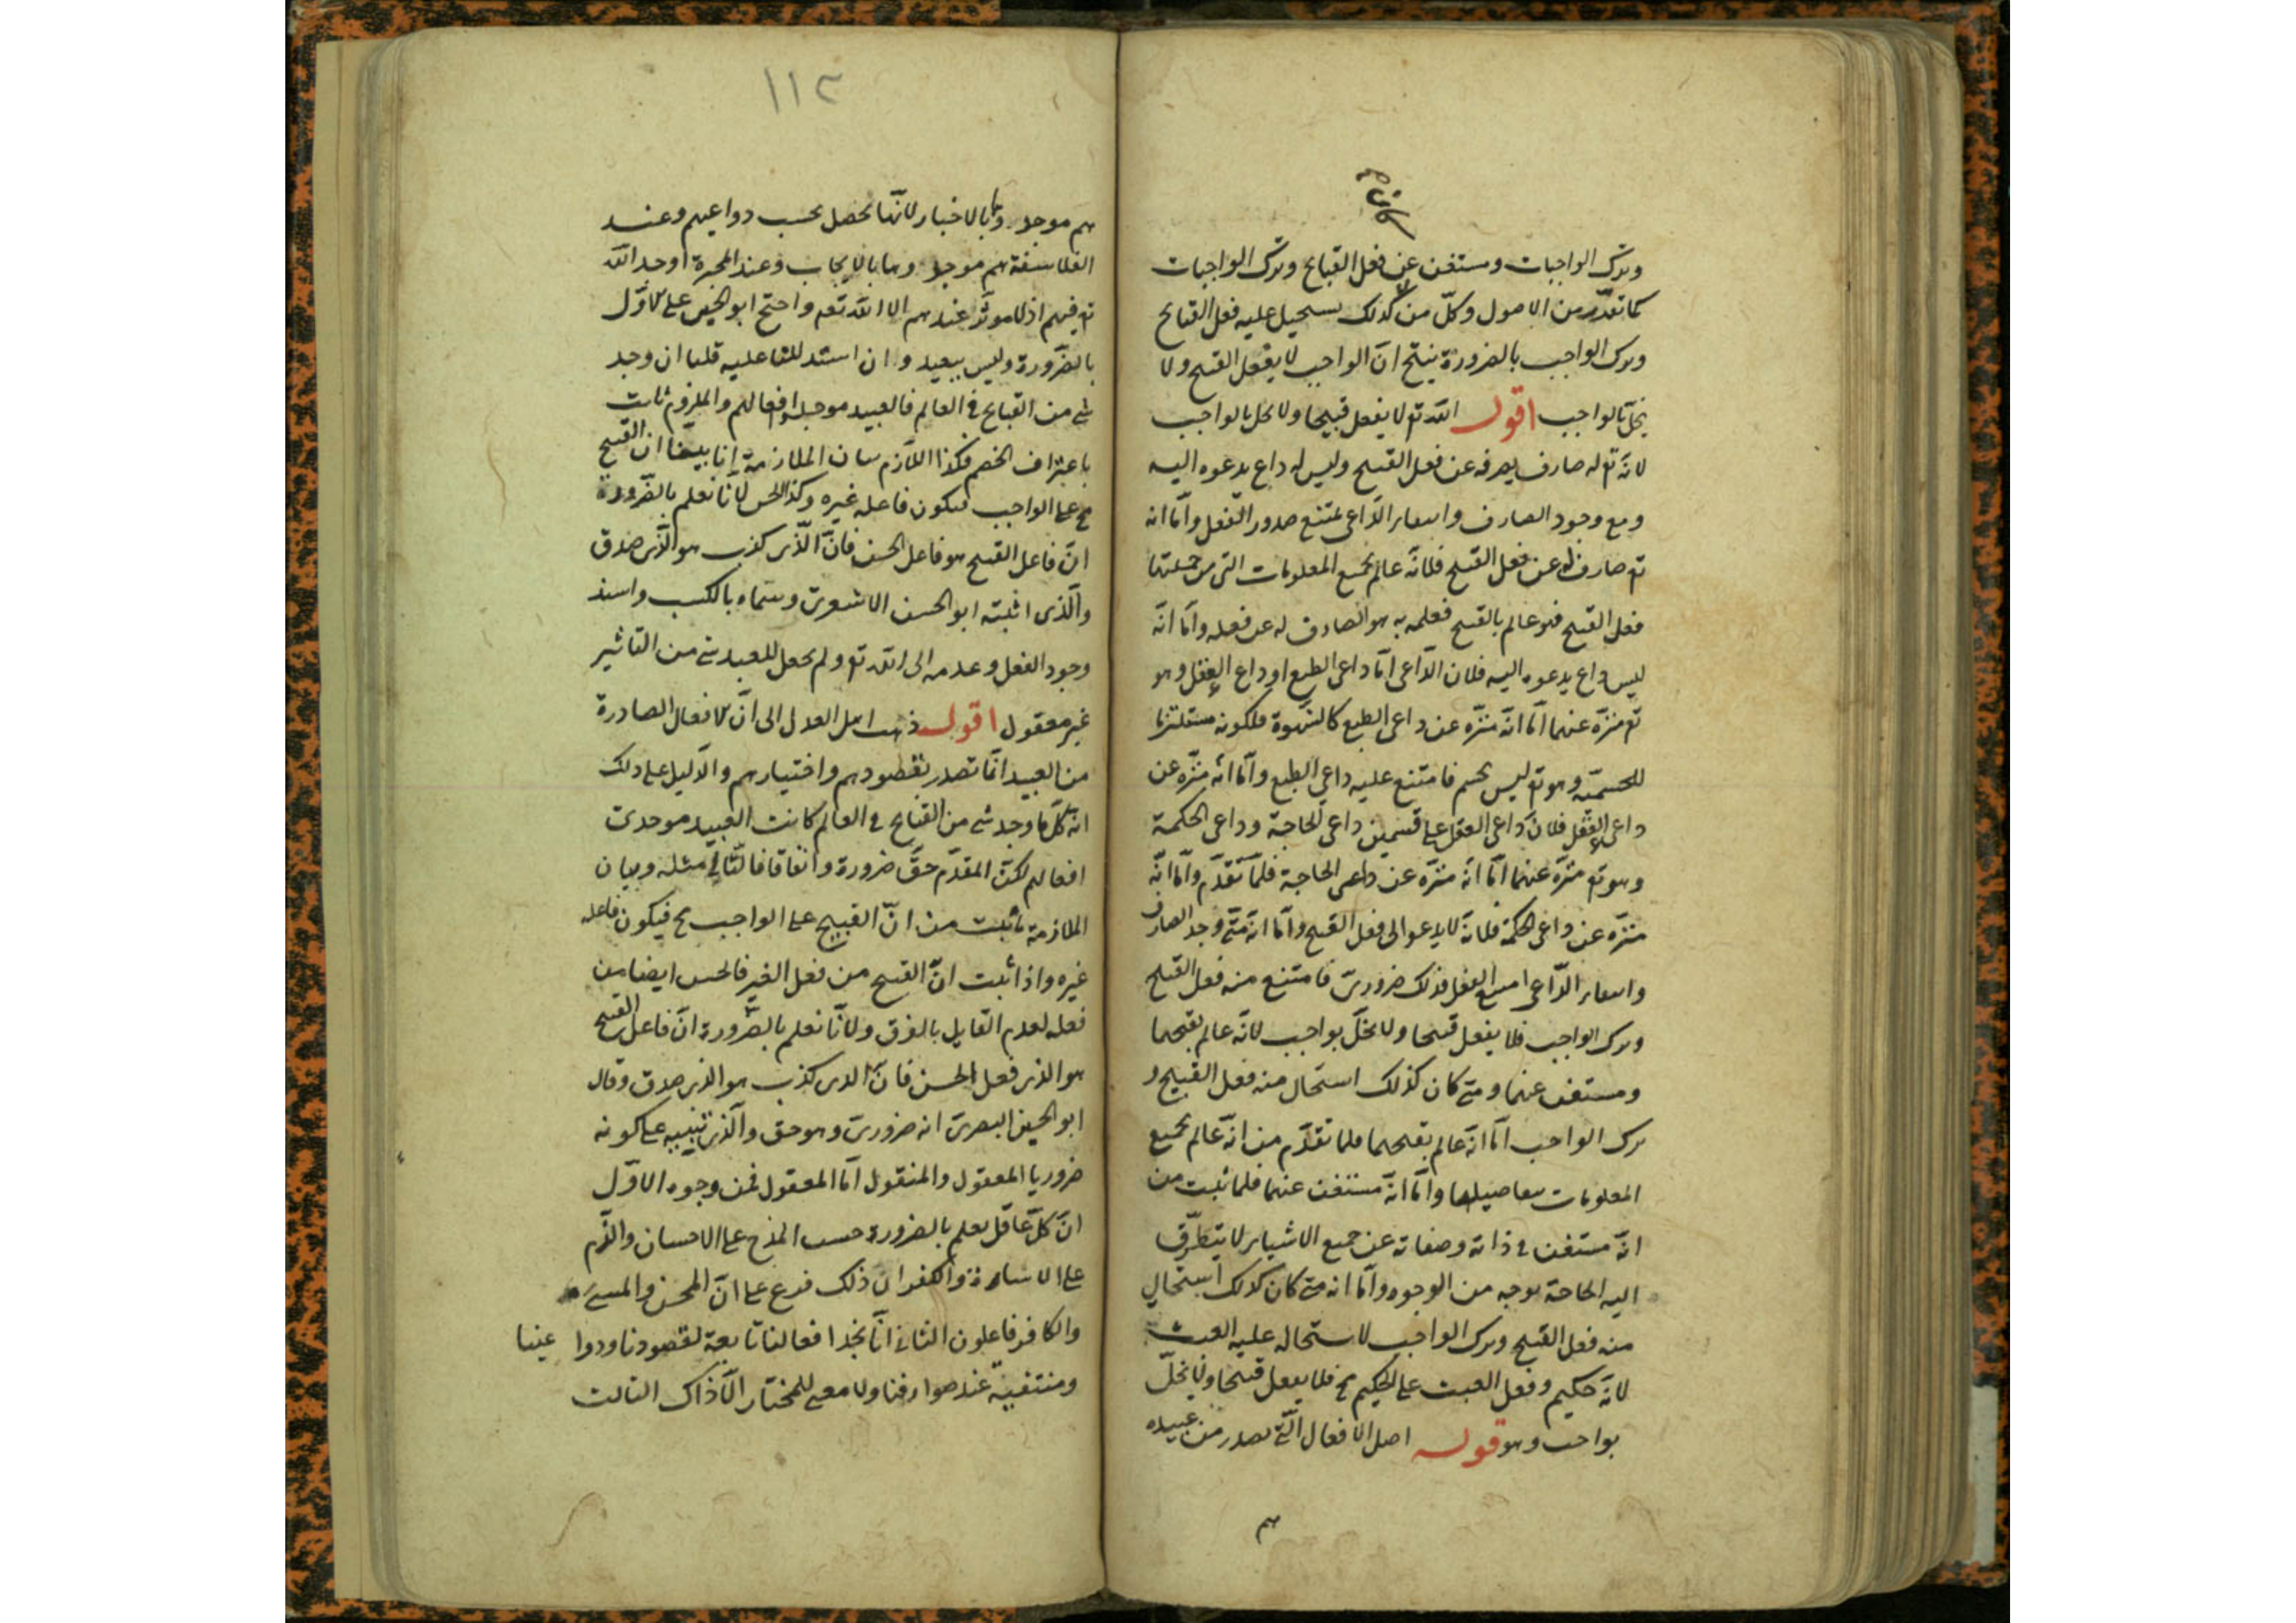 وترك الواجبات ومستغن عن فعل القبايح وترك الواجبات
كما تقدم من الاصول وكل من كذلك يستحيل عليه فعل القبايح
وترك الواجب بالضرورة ينتج ان الواجب لا يفعل القبيح ولا
يخل بالواجب اقول الله تع لا يفعل قبيحا ولا يخل بالواجب
لانه تع له صارف يصرفه عن فعل القبيح وليس له داع يدعوه اليه
ومع وجود الصارف وانتفاء الداعى يمتنع صدور الفعل واما انه
تع صارف له عن فعل القبيح فلانه عالم بجميع المعلومات التى من جملتها
فعل القبيح فهو عالم بالقبيح فعلمه به هو الصارف له عن فعله واما انه
ليس داع يدعوه اليه فلان الداعى اما داعى الطبع او داع العقل وهو
تع منزه عنهما اما انه منزه عن داعى الطبع كالشهوة فلكونه مستلزما
للجسمية وهو تع ليس بجسم فامتنع عليه داعي الطبع واما انه منزه عن
داعى العقل فلان داعى العقل على قسمين داعى الحاجة وداعى الحكمة
وهو تع منزه عنهما اما انه منزه عن داعى الحاجة فلما تقدم واما انه
منزه عن داعى الحكمة فلانه لا يدعو الى فعل القبيح واما انه متى وجد الصارف
وانتفاء الداعى امتنع الفعل فذلك ضرورى فامتنع منه فعل القبيح
وترك الواجب فلا يفعل قبيحا ولا يخل بواجب لانه عالم بقبحهما
ومستغن عنهما ومتى كان كذلك استحال منه فعل القبيح و
ترك الواجب اما انه عالم بقبحهما فلما تقدم من انه عالم بجميع
المعلومات بتفاصيلها واما انه مستغن عنهما فلما ثبت من
انه مستغن فى ذاته وصفاته عن جميع الاشياء لا يتطرق
اليه الحاجة بوجه من الوجوه واما انه متى كان كذلك استحال
منه فعل القبيح وترك الواجب لاستحاله عليه العبث
لانه حكيم وفعل العبث على الحكيم مح فلا يفعل قبيحا ولا يخل
بواجب وهو قوله اصل الافعال التى تصدر من عبيده
هم
١١٢
هم موجدوها بالاختيار لانها تحصل بحسب دواعيهم وعند
الفلاسفة هم موجدوها بالايجاب وعند المجبرة اوجد الله
تع فيهم اذ لا موثر عندهم الا الله تعه واحتج ابو الحسين على الاول
بالضرورة وليس ببعيد وان استدللنا عليه قلنا ان وجد
شى من القبايح فى العالم فالعبيد موجدوا افعالهم والملزوم ثابت
باعتراف الخصم فكذا اللازم بيان الملازمة انا بينا ان القبيح
مح على الواجب فيكون فاعله غيره وكذا الحسن لانا نعلم بالضرورة
ان فاعل القبيح هو فاعل الحسن فان الذى كذب هو الذى صدق
والذى اثبته ابو الحسن الاشعرى وسماه بالكسب واسند
وجود الفعل وعدمه الى الله تع ولم يجعل للعبد شى من التاثير
غير معقول اقول ذهب اهل العدل الى ان الافعال الصادرة
من العبيد انما تصدر بقصودهم واختيارهم والدليل على ذلك
انه كلما وجد شى من القبايح فى العالم كانت العبيد موجدى
افعالهم لكن المقدم حق ضرورة واتفاقا فالتالى مثله وبيان
الملازمة ما ثبت من ان القبيح على الواجب مح فيكون فاعله
غيره واذا ثبت ان القبيح من فعل الغير فالحسن ايضا من
فعله لعدم القايل بالفرق ولانا نعلم بالضرورة ان فاعل القبيح
هو الذى فعل الحسن فان الذى كذب هو الذى صدق وقال
ابو الحسين البصرى انه ضرورى وهو حق والذى ينبيه على كونه
ضروريا المعقول والمنقول اما المعقول فمن وجوه الاول
ان كل عاقل يعلم بالضرورة حسن المدح على الاحسان والذم
على الاساءة والكفر ان ذلك فرع على ان المحسن والمسئ
والكافر فاعلون الثانى انا نجد افعالنا تابعة لقصودنا ودوا عينا
ومنتفية عند صوارفنا ولا معنى للمختار الا ذاك الثالث